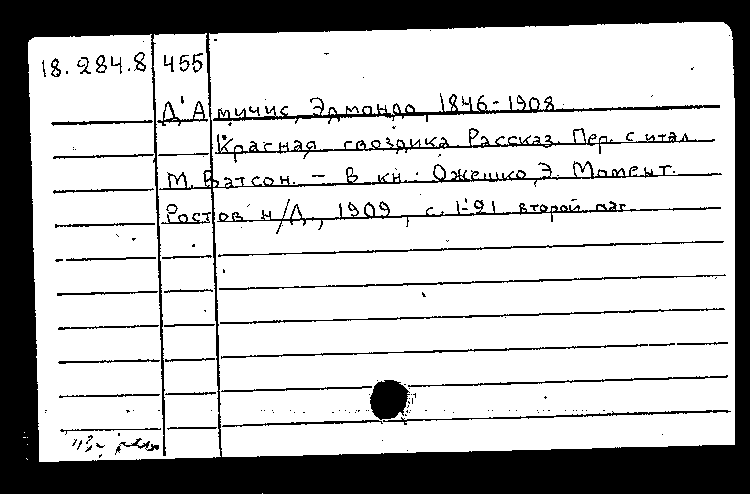 18.284.8 455
Д'Амичис, Эдмондо, 1846-1908
Красная гвоздика. Рассказ. Пер. с итал.
М. Ватсон. - В кн.: Ожешко, Э. Момент.
Ростов н/Д., 1909, с. 1-21 второй паг.